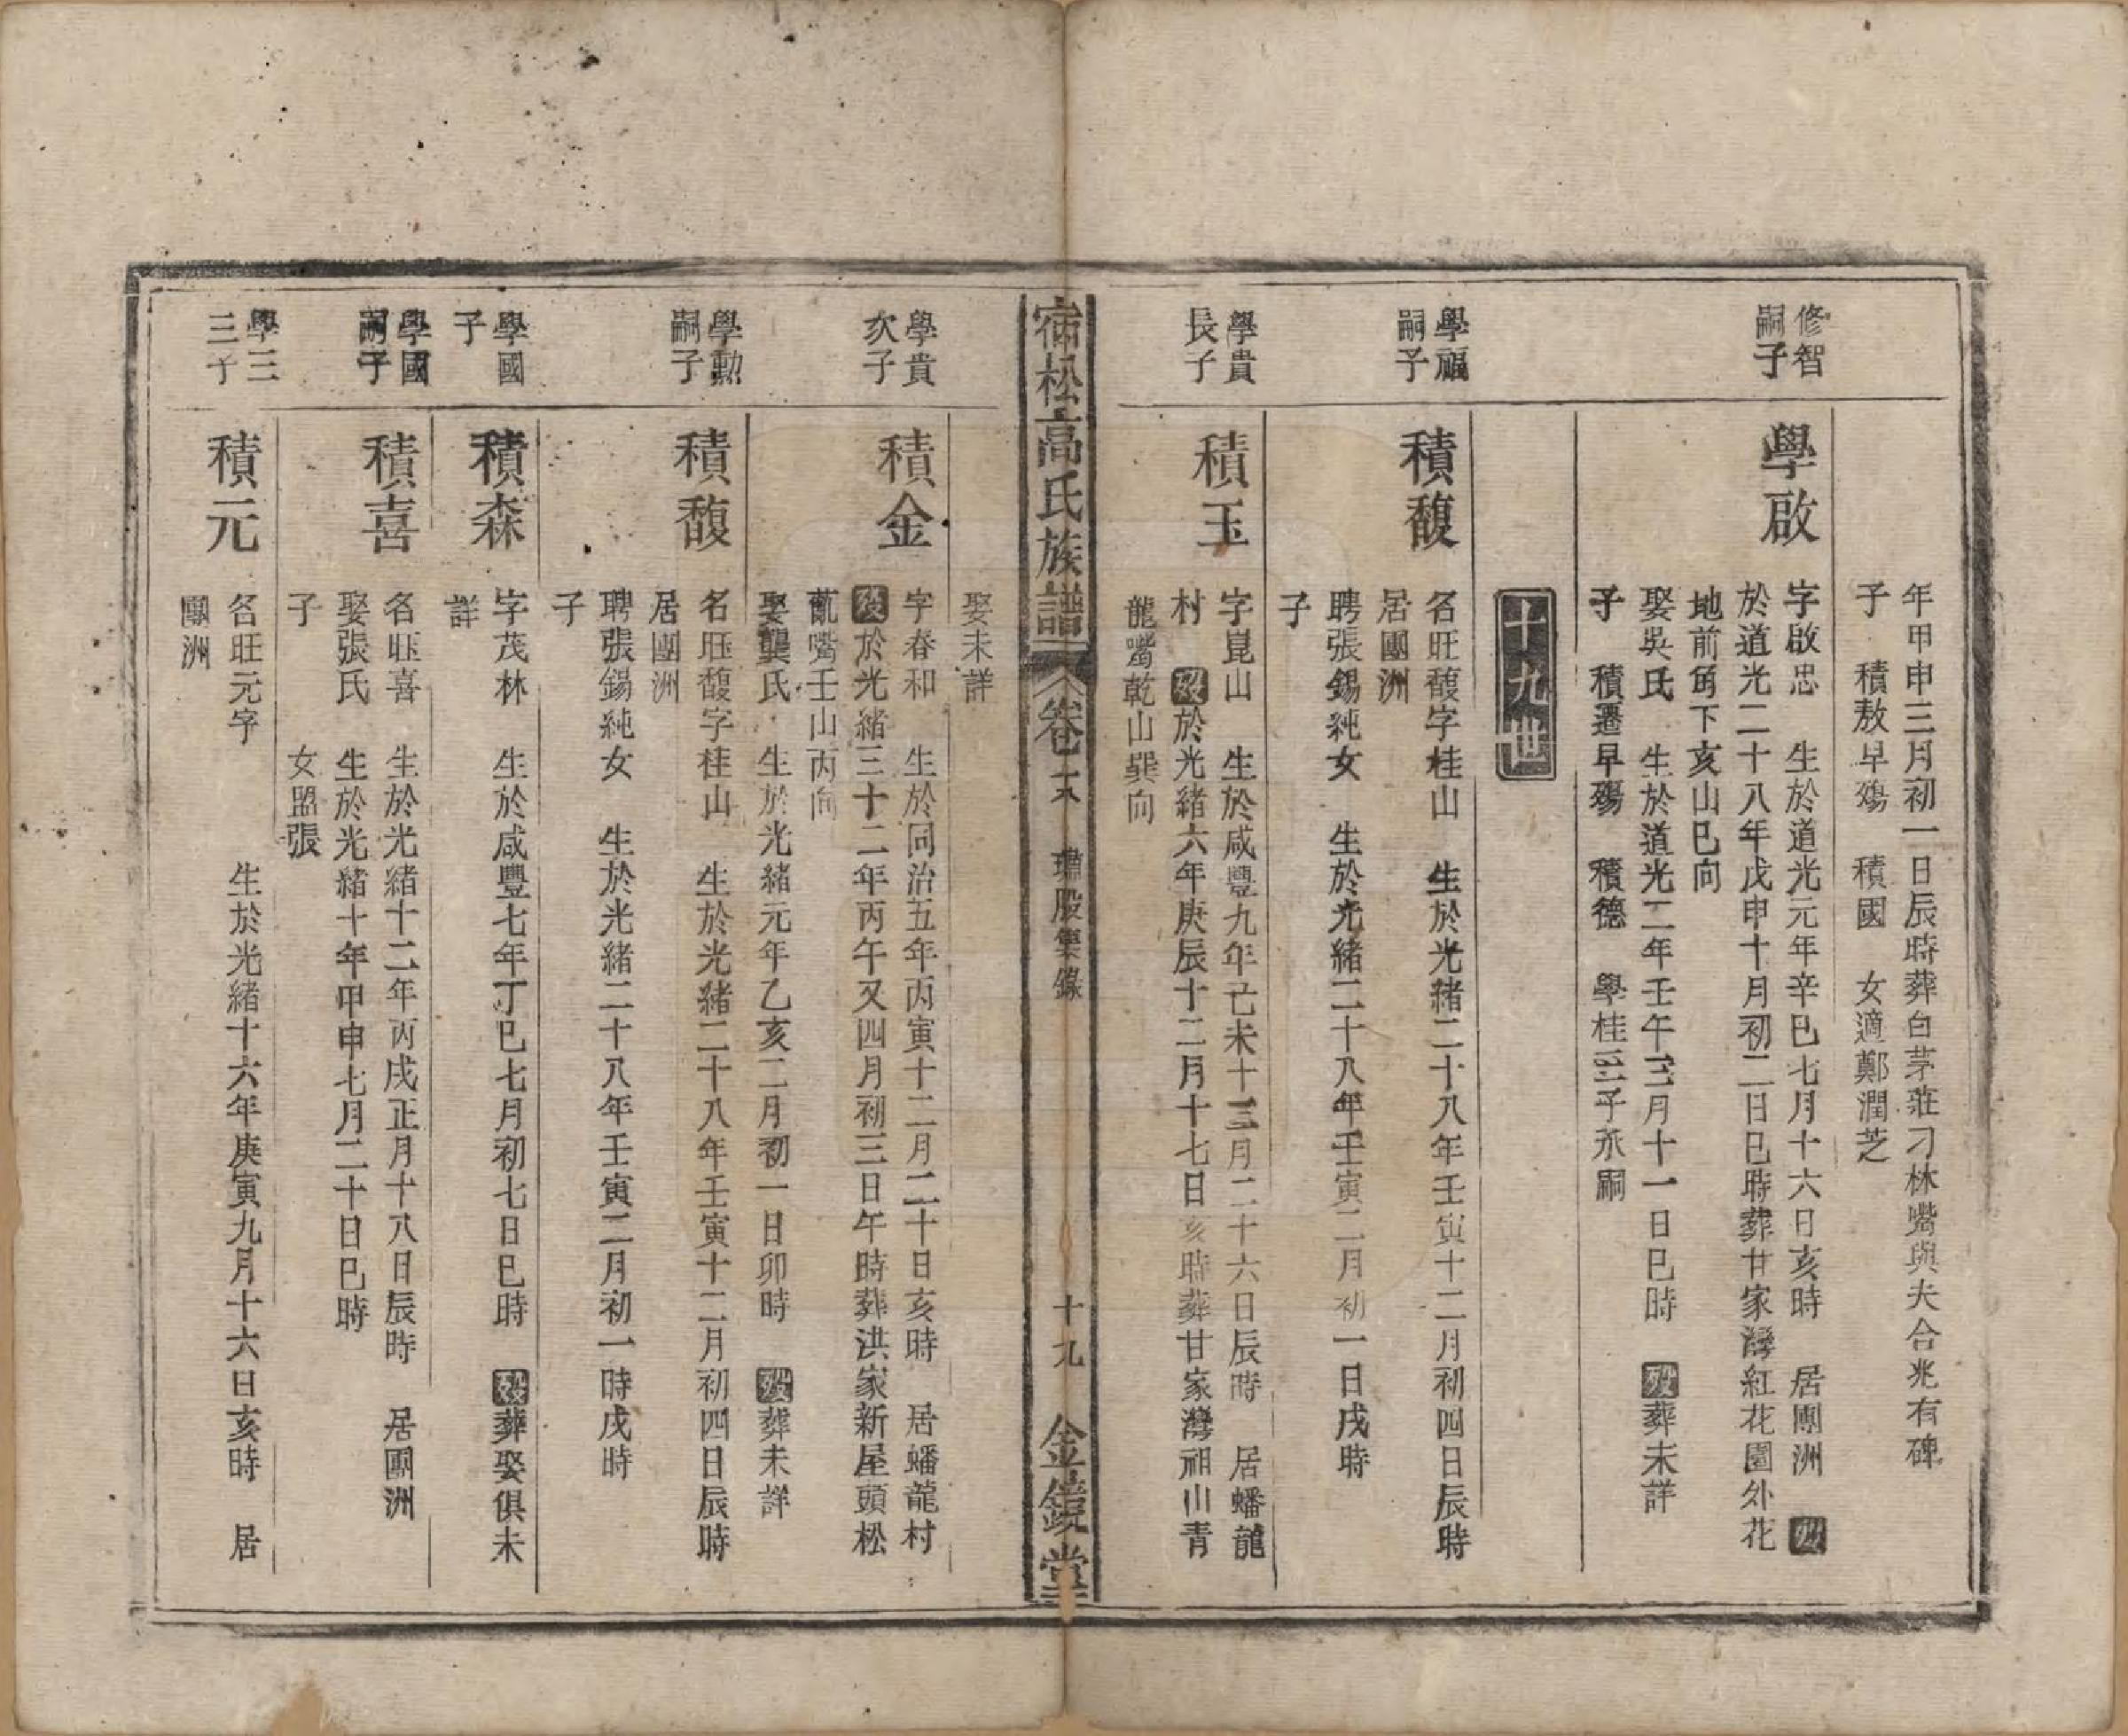 年甲申三月初一日辰時葬白茅莊刁林嘴與夫合兆有碑
子　積敖早殤　積國　女適鄭潤芝
修智
嗣子
學啟
字啟忠　生於道光元年辛巳七月十六日亥時　居團洲　歿
於道光二十八年戊申十月初二日巳時葬甘家灣紅花園外花
地前角下亥山巳向
娶吳氏　生於道光二年壬午三月十一日巳時　歿葬未詳
子　積遷早殤　積德　學桂三子承嗣
十九世
學福
嗣子
積馥
名旺馥字桂山　生於光緒二十八年壬寅十二月初四日辰時
居團洲
聘張錫純女　生於光緒二十八年壬寅二月初一日戌時
子
學貴
長子
積玉
字崑山　生於咸豐九年己未十三月二十六日辰時　居蟠龍
村　歿於光緒六年庚辰十二月十七日亥時葬甘家灣祖山青
龍嘴乾山巽向
宿松高氏族譜　卷十八　股集錄　十九　金鏡堂
娶未詳
學貴
次子
積金
字春和　生於同治五年丙寅十二月二十日亥時　居蟠龍村
歿於光緒三十二年丙午又四月初三日午時葬洪家新屋頭松
嘴壬山丙向
娶龔氏　生於光緒元年乙亥二月初一日卯時　歿葬未詳
學勳
嗣子
積馥
名旺馥字桂山　生於光緒二十八年壬寅十二月初四日辰時
居團洲
聘張錫純女　生於光緒二十八年壬寅二月初一時戌時
子
學國
子
積森
字茂林　生於咸豐七年丁巳七月初七日巳時　歿葬娶俱未
詳
學國
嗣子
積喜
名旺喜　生於光緒十二年丙戌正月十八日辰時　居團洲
娶張氏　生於光緒十年甲申七月二十日巳時
子　　　女盟張
學三
三子
積元
名旺元字　　　生於光緒十六年庚寅九月十六日亥時　居
團洲